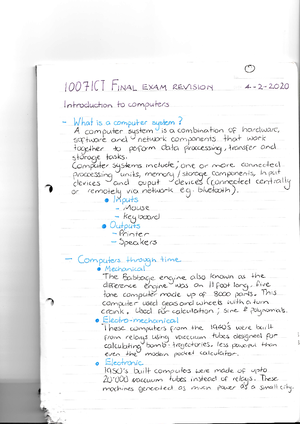 ①
1007ICT FINAL EXAM REVISION 4-2-2020
Introduction to computers
- What is a computer system?
A computer system is a combination of hardware,
software and network components that work
together to peform data processing, transfer and
storage tasks.
Computer systems include, one or more connected
processing units, memory/storage components, input
devices and ouput devices (connected centrally
or remotely via network e.g. bluetooth).
• Inputs
- Mouse
- Keyboard
• Outputs
- Printer
- Speakers
- Computers through time
• Mechanical
The Babbage engine also known as the
difference engine was an 11 foot long, five
tone computer made up of 8000 parts. This
computer used gears and wheels with a turn
crank. Used for calculation; sine & polynomials.
• Electro-mechanical
These computers from the 1940's were built
from relays using vaccuum tubes designed for
calculating bomb-trajectories, less powerful than
even the modern pocket calculator.
• Electronic
1950's built computes were made of upto
20'000 vaccuum tubes instead of relays. These
machines generated as much power as a small city.